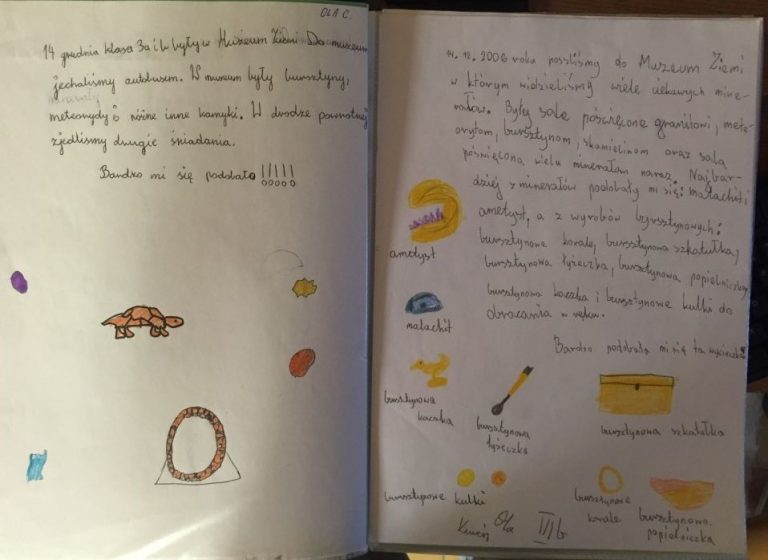 OLA C.
14 grudnia klasa 3a i b były w Muzeum Ziemi Do muzeum
jechaliśmy autobusem. W muzeum były bursztyny,
meteorydy i różne inne kamyki. W drodze powrotnej
zjedliśmy drugie śniadania.
Bardzo mi się podobało !!!!!
14.12.2006 roku poszliśmy do Muzeum Ziemi
w którym widzieliśmy wiele ciekawych mine-
rałów. Były sale poświęcone granitowi, mete-
orytom, bursztynom, skamielinom oraz sala
poświęcona wielu minerałom naraz. Najbar-
dziej z minerałów podobały mi się: malachit i
ametyst, a z wyrobów bursztynowych:
bursztynowe korale, bursztynowa szkatułka,
bursztynowa łyżeczka, bursztynowa popielniczka,
bursztynowa kaczka i bursztynowe kulki do
obracania w ręku.
Bardzo podobała mi się ta wycieczka
ametyst
malachit
bursztynowa
kaczka
bursztynowa
łyżeczka
bursztynowa szkatułka
bursztynowe kulki
bursztynowe
korale
bursztynowa
popielniczka
Ola
III b